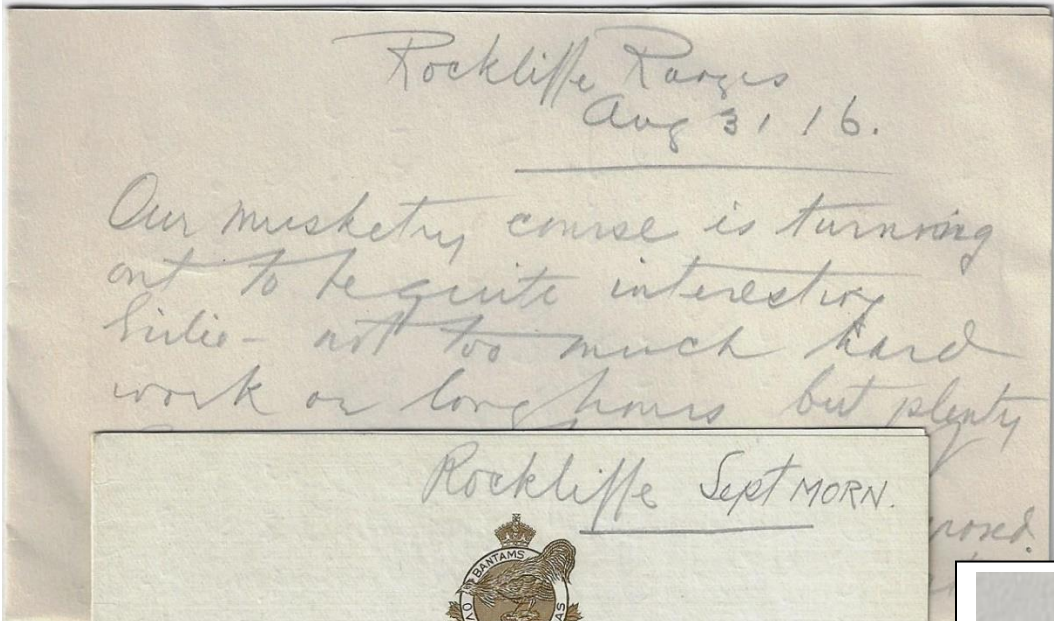 Rockliffe Ranges
Aug 31 16.
Our musketry course is turning
out to be quite interesting
Girlie - not too much hard
work or long hours but plenty
Rockliffe Sept MORN.
BANTAMS